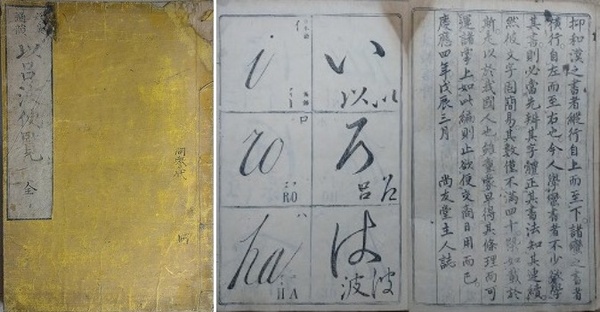 以呂波便覧 全
抑和漢之書者縱行自上而至下諸蠻之書者
橫行自左而至右也今人學蠻書者不少欲學
其書則必當先辨其字體正其書法知其連續
然彼文字固簡易其數僅不滿四十如載於
斯是以於我國人也雖童蒙早得其條理而可
運諸掌上如此編則止欲便交商日用而已
慶應四年戊辰三月 尚友堂主人誌
い 以
i
ろ 呂
ロ
ro
RO
は 波
ハ
ha
HA